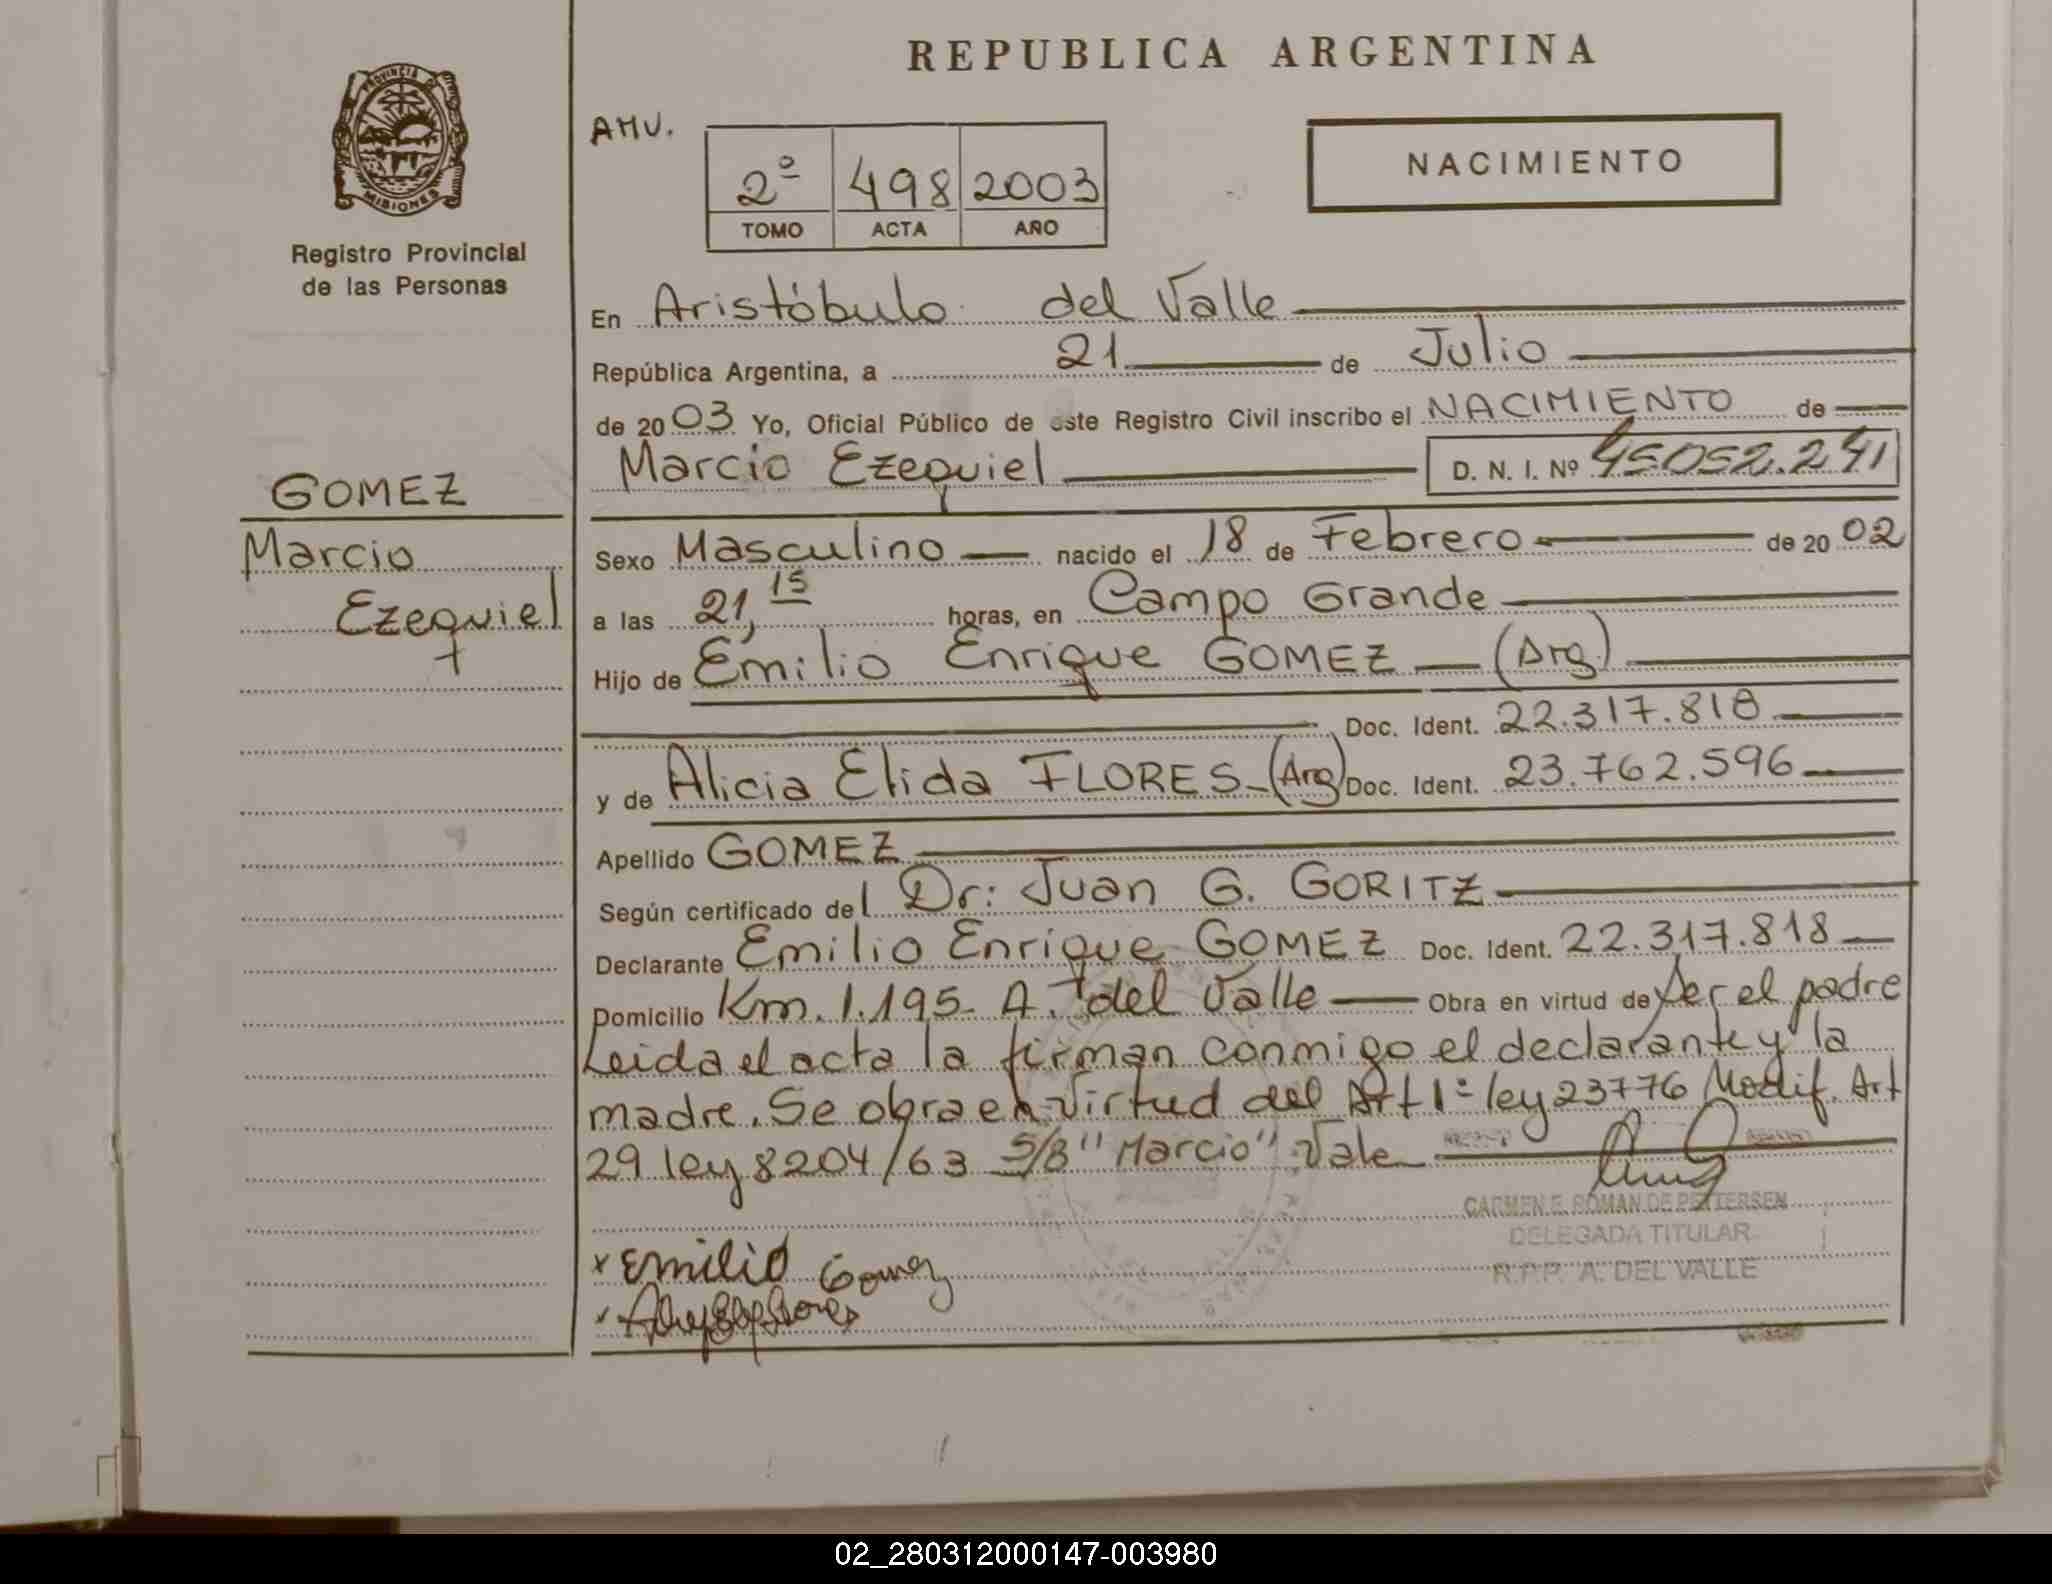 REPUBLICA ARGENTINA
PROVINCIA DE
MISIONES
Registro Provincial
de las Personas
AMU.
2º 498 2003
TOMO ACTA AÑO
NACIMIENTO
En Aristóbulo del Valle
República Argentina, a 21 de Julio
de 2003 Yo, Oficial Público de este Registro Civil inscribo el NACIMIENTO de
Marcio Ezequiel D. N. I. Nº 45052.241
GOMEZ
Marcio
Ezequiel
Sexo Masculino nacido el 18 de Febrero de 2002
a las 21,15 horas, en Campo Grande
Hijo de Emilio Enrique GOMEZ — (Arg)
Doc. Ident. 22.317.818
y de Alicia Elida FLORES - (Arg) Doc. Ident. 23.762.596
Apellido GOMEZ
Según certificado del Dr: Juan G. GORITZ
Declarante Emilio Enrique GOMEZ Doc. Ident. 22.317.818
Domicilio Km. 1.195- A. del Valle — Obra en virtud de Ser el padre
Leida el acta la firman conmigo el declarante y la
madre. Se obra en virtud del Art 1º ley 23776 Modif. Art
29 ley 8204/63 S/B "Marcio" Vale
CARMEN E. ROMAN DE PETTERSEN
DELEGADA TITULAR
R.P.P. A. DEL VALLE
x Emilio Gomez
02_280312000147-003980